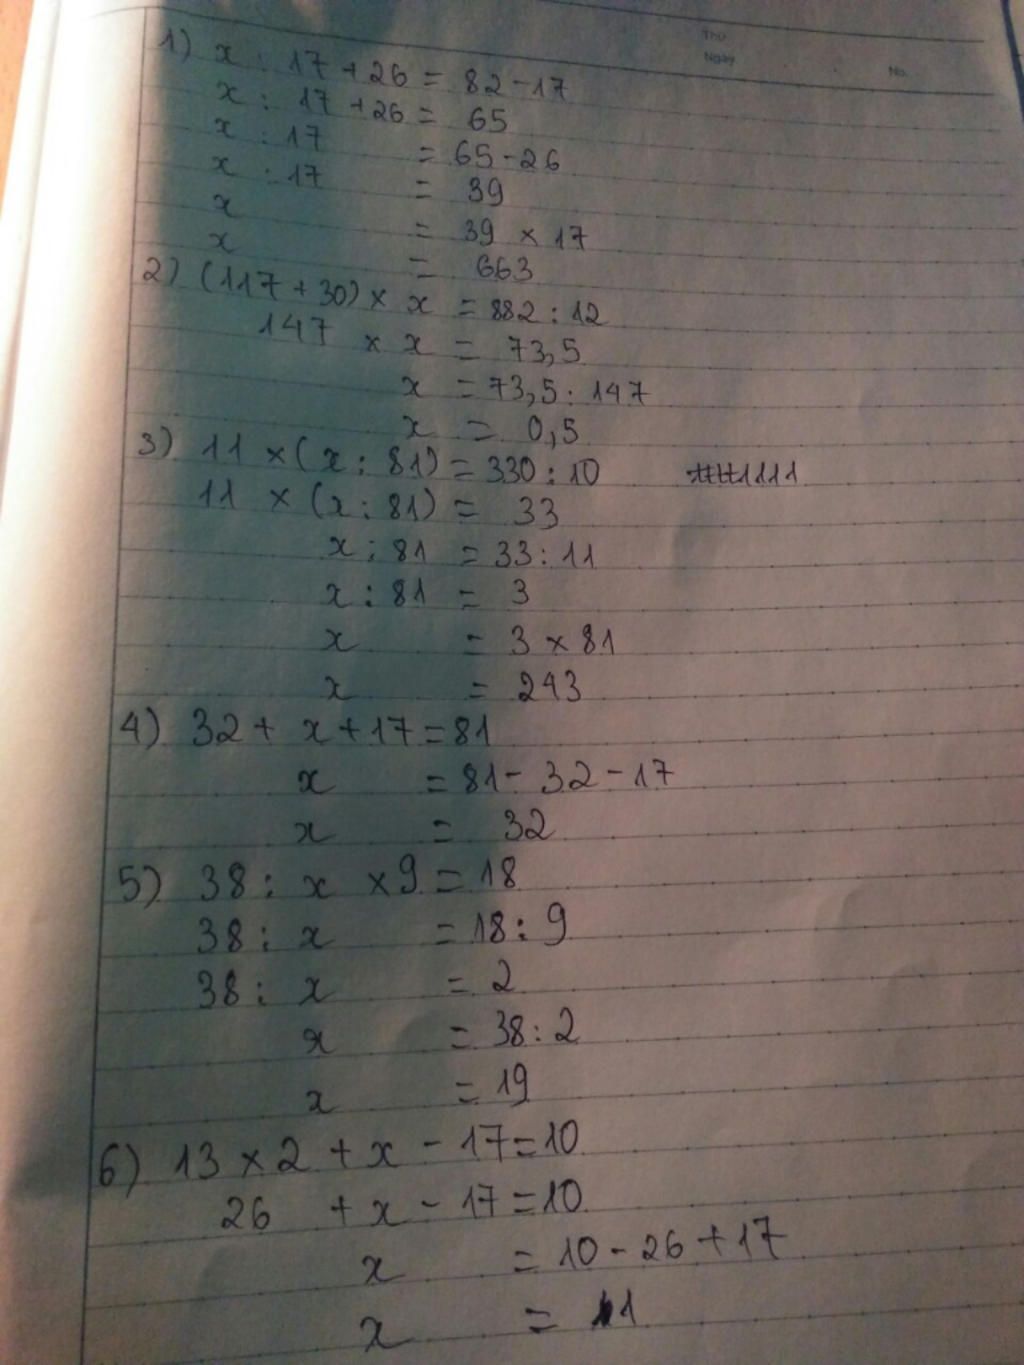 Thứ
Ngày No.
1) x : 17 + 26 = 82 - 17
x : 17 + 26 = 65
x : 17 = 65 - 26
x : 17 = 39
x = 39 × 17
x = 663
2) (117 + 30) × x = 882 : 12
147 × x = 73,5
x = 73,5 : 147
x = 0,5
3) 11 × (x : 81) = 330 : 10
11 × (x : 81) = 33
x : 81 = 33 : 11
x : 81 = 3
x = 3 × 81
x = 243
4) 32 + x + 17 = 81
x = 81 - 32 - 17
x = 32
5) 38 : x × 9 = 18
38 : x = 18 : 9
38 : x = 2
x = 38 : 2
x = 19
6) 13 × 2 + x - 17 = 10
26 + x - 17 = 10
x = 10 - 26 + 17
x = 1